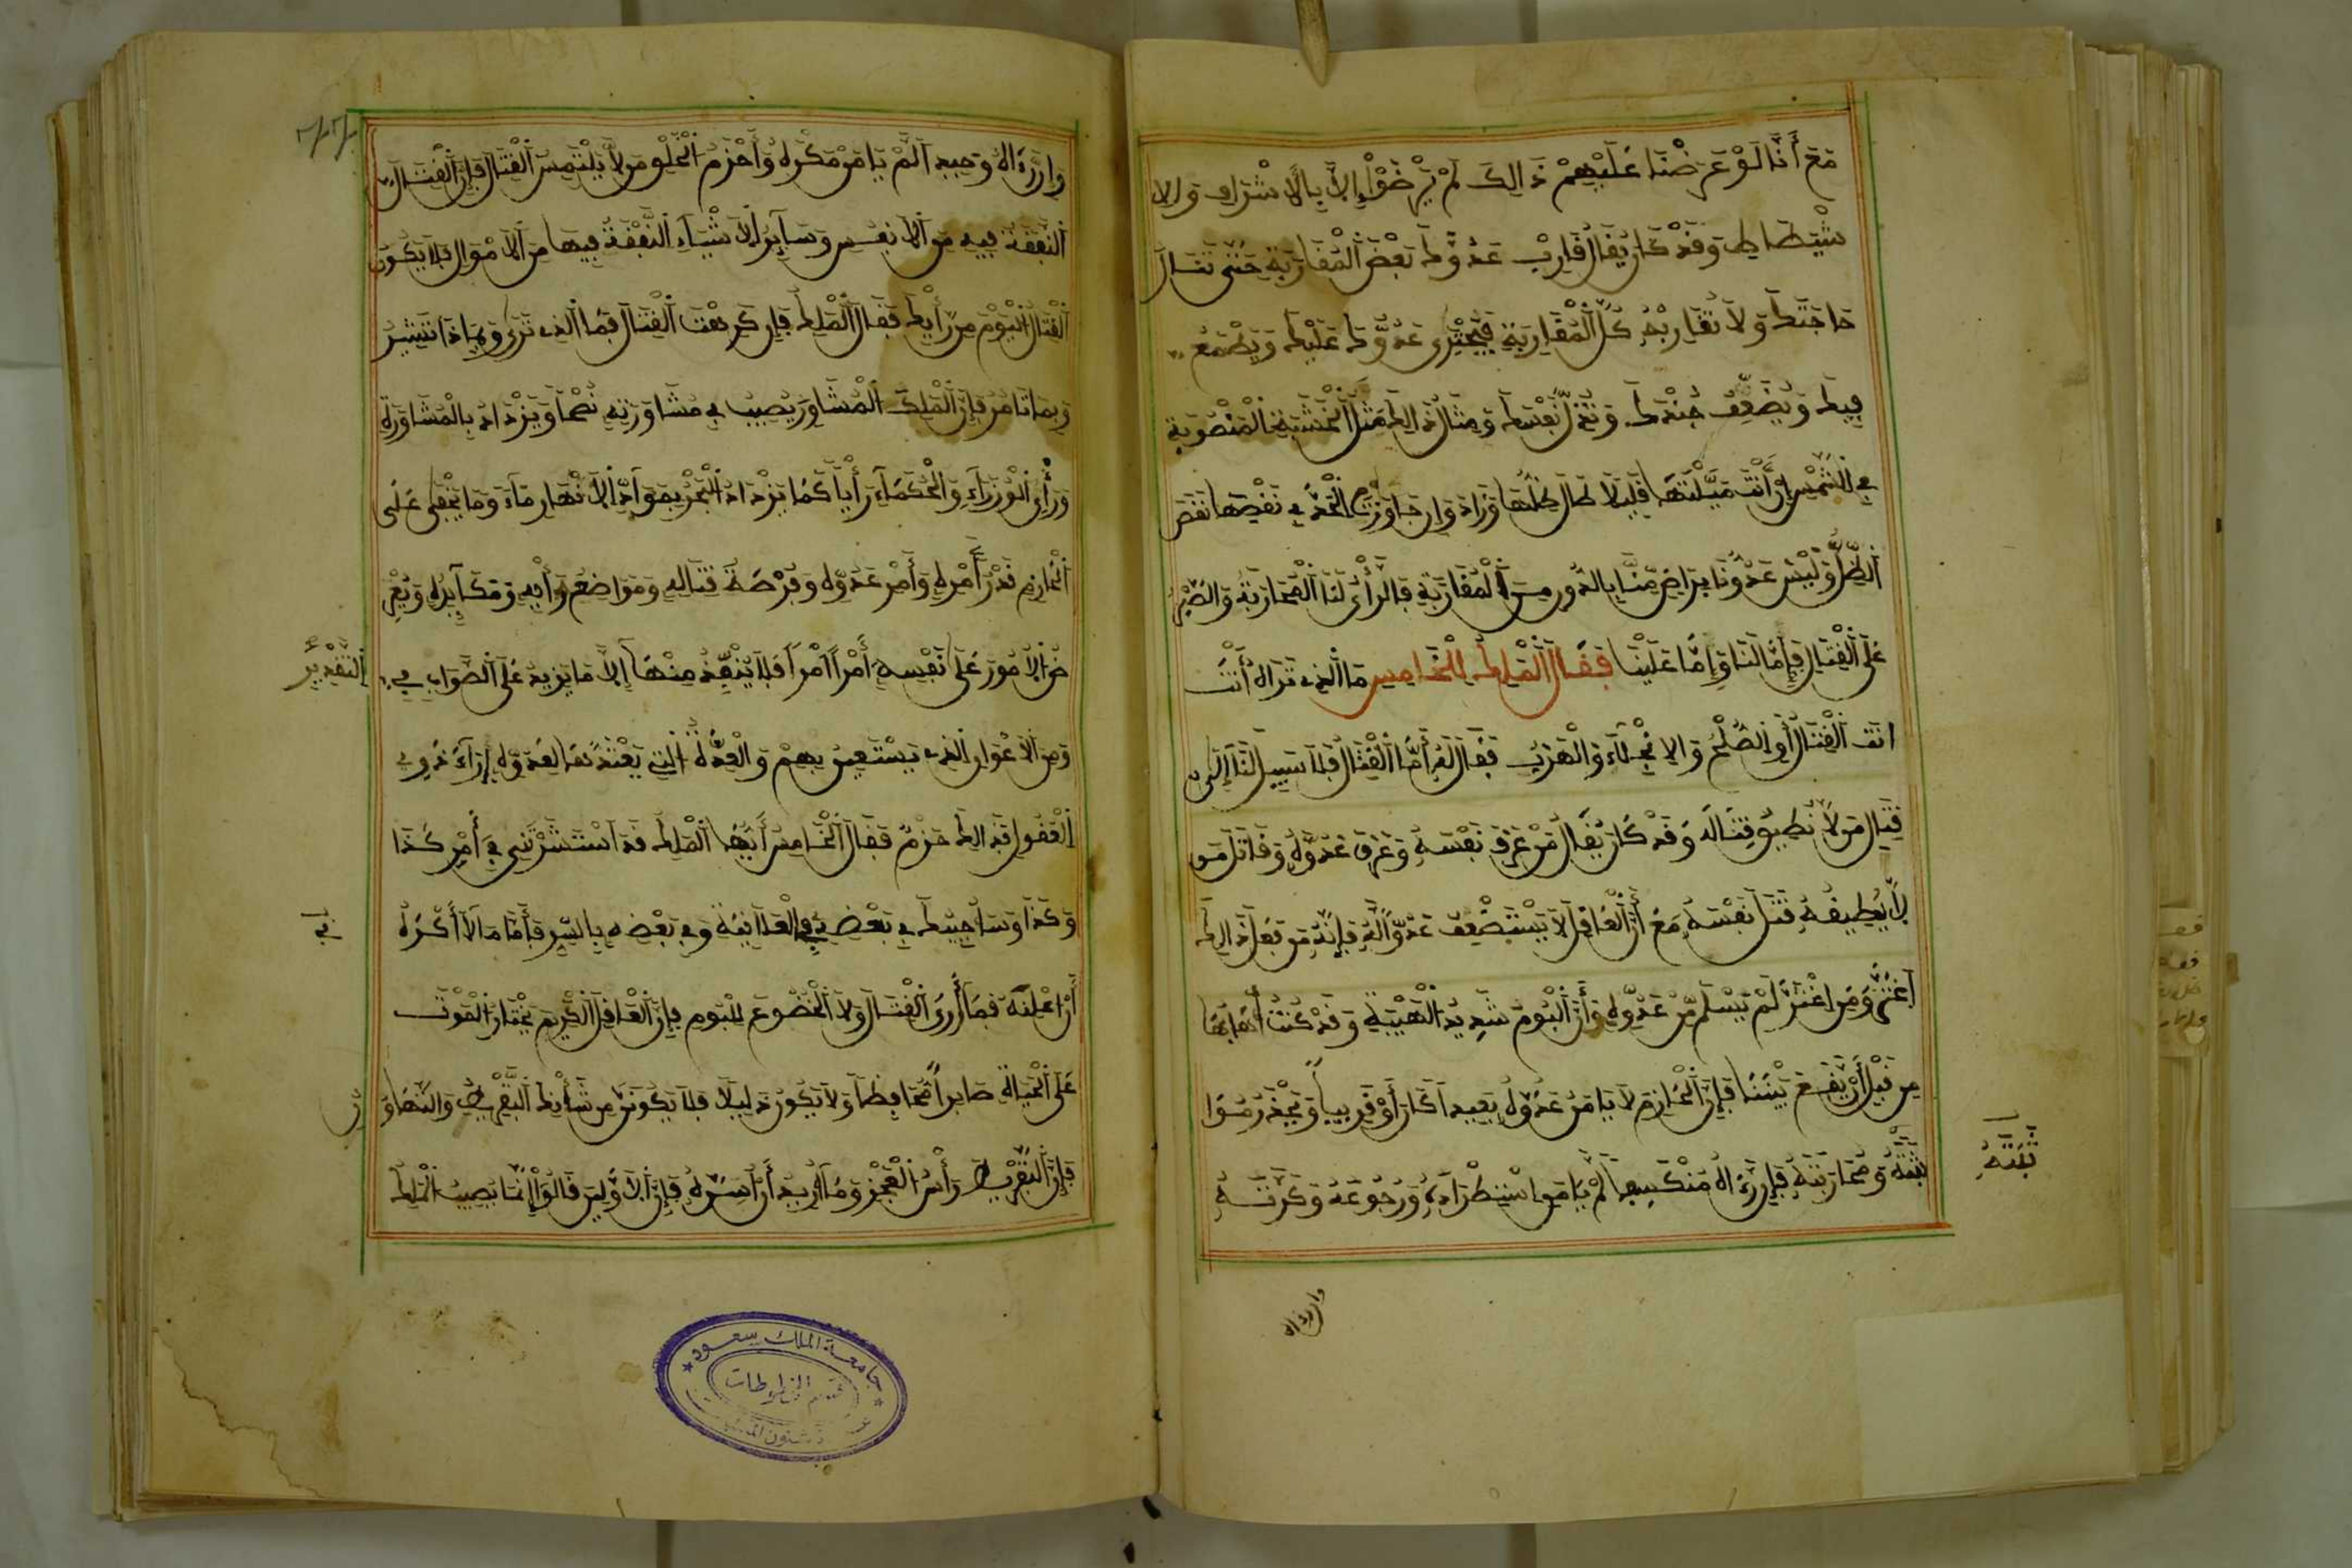 مَعَ أَنَّا لَوْ عَرَضْنَا عَلَيْهِمْ ذَالِكَ لَمْ يَرْضَوْا إِلَّا بِالاشْتِرَاكِ وَالا
شْتِطَاطِ وَقَدْ كَانَ يُقَالُ قَارِبْ عَدُوَّكَ بَعْضَ الْمُقَارَبَةِ حَتَّى تَنَالَ
حَاجَتَكَ وَلَا تُقَارِبْهُ كُلَّ الْمُقَارَبَةِ فَيَجْتَرِى عَدُوُّكَ عَلَيْكَ وَيَطْمَعُ
فِيكَ وَيُضَعِّفُ جُنْدَكَ وَتُذِلَّ نَفْسَكَ وَمِثَالُ ذَالِكَ مَثَلُ الْخَشَبَةِ الْمَنْصُوبَةِ
فِي الشَّمْسِ إِنْ أَنْتَ مَيَّلْتَهَا قَلِيلًا طَالَ ظِلُّهَا وَزَادَ وَإِنْ جَاوَزْتَ الْحَدَّ فِي نَقْصِهَا نَقَصَ
الظِّلُّ وَلَيْسَ عَدُوُّنَا بِرَاضٍ مِنَّا بِالدُّونِ مِنَ الْمُقَارَبَةِ فَالرَّأْيُ لَنَا الْمُحَارَبَةُ وَالصَّبْرُ
عَلَى الْقِتَالِ فَإِمَّا لَنَا وَإِمَّا عَلَيْنَا فَقَالَ الْمَلِكُ لِلْخَامِسِ مَا الَّذِي تَرَاهُ أَنْتَ
انَتَ الْقِتَالُ أَوِ الصُّلْحُ وَالا نْجِلَاءُ وَالْهَرَبُ فَقَالَ لَهُ أَمَّا الْقِتَالُ فَلَا سَبِيلَ لَنَا إِلَى
قِتَالِ مَن لَّا نُطِيقُ قِتَالَهُ وَقَدْ كَانَ يُقَالُ مَنْ عَرَفَ نَفْسَهُ وَعَرَفَ عَدُوَّهُ وَقَاتَلَ مَن
لَّا يُطِيقُهُ قَتَلَ نَفْسَهُ مَعَ أَنَّ الْعَاقِلَ لَا يَسْتَضْعِفُ عَدُوًّا لَهُ فَإِنَّهُ مَن فَعَلَ ذَالِكَ
اغْتَرَّ وَمَنِ اغْتَرَّ لَمْ يَسْلَمْ مِنْ عَدُوِّهِ وَأَنَّ الْبُومَ شَدِيدُ الْهَيْبَةِ وَقَدْ كُنْتُ أَهَابُهَا
مِن قَبْلِ أَنْ يَقَعَ بَيْنَنَا فَإِنَّ الْحَازِمَ لَا يَامَنُ عَدُوَّهُ بَعِيدًا كَانَ أَوْ قَرِيبًا وَيَحْذَرُ مِن
ثِقَتِهِ وَمُحَارَبَتِهِ فَإِن رَءَاهُ مُنْكَشِفًا لَمْ يَامَنِ اسْتِطْرَادَهُ وَرُجُوعَهُ وَكَرَّتَهُ
ثِقَتِهِ
وإن رءاه
وإن رَّءَاهُ وَحِيدًا لَمْ يَامَنْ مَكْرَهُ وَأَحْزَمُ الْخَلْقِ مَن لَّا يَلْتَمِسُ الْقِتَالَ فَإِنَّ الْقِتَالَ
النَّفَقَةُ فِيهِ مِنَ الْأَنْفُسِ وَسَائِرُ الْأَشْيَاءِ النَّفَقَةُ فِيهَا مِنَ الْأَمْوَالِ فَلَا يَكُونَنَّ
الْقِتَالُ الْيَوْمَ مِن رَّأْيِكَ فَقَالَ الْمَلِكُ فَإِن كَرِهْتَ الْقِتَالَ فَمَا الَّذِي تَرَى وَبِمَاذَا تُشِيرُ
وَبِمَا تَامُرُ فَإِنَّ الْمَلِكَ الْمُشَاوِرَ يُصِيبُ فِي مُشَاوَرَتِهِ نُصْحًا وَيَزْدَادُ بِالْمُشَاوَرَةِ
وَرَأْيِ الْوُزَرَاءِ وَالْحُكَمَاءِ رَأْيًا كَمَا يَزْدَادُ الْبَحْرُ بِمَوَادِّ الْأَنْهَارِ مَاءً وَمَا يَخْفَى عَلَى
الْحَازِمِ قَدْرُ أَمْرِهِ وَأَمْرِ عَدُوِّهِ وَفُرْصَةُ قِتَالِهِ وَمَوَاضِعُ رَأْيِهِ وَمَكَايِدُهُ وَيَعْرِ
ضُ الْأُمُورَ عَلَى نَفْسِهِ أَمْرًا أَمْرًا فَلَا يُنْفِذُ مِنْهَا إِلَّا مَا يَزِيدُ عَلَى الصَّوَابِ فِي
التَّقْدِيرُ
وَمِنَ الْأَعْوَانِ الَّذِي يَسْتَعِينُ بِهِمْ وَالْعُدَّةُ الَّتِي يَعْتَدُّهَا لِعَدُوِّهِ إِزَاءَ ذَوِي
الْعُقُولِ فَذَالِكَ حَزْمٌ فَقَالَ الْخَامِسُ أَيُّهَا الْمَلِكُ قَدِ اسْتَشَرْتَنِي فِي أَمْرِ كَذَا
وَكَذَا وَسَأُجِيبُكَ فِي بَعْضِهِ فِي الْعَلَانِيَةِ وَفِي بَعْضِهِ بِالسِّرِّ فَأَمَّا مَا لَا أَكْرَهُ
فِي
أَنْ أُعْلِنَهُ فَمَا أَرَى الْقِتَالَ وَلَا الْخُضُوعَ لِلْبُومِ فَإِنَّ الْعَاقِلَ الْكَرِيمَ يَخْتَارُ الْمَوْتَ
عَلَى الْحَيَاةِ صَابِرًا مُحَافِظًا وَلَا يَكُونُ ذَلِيلًا فَلَا يَكُونَنَّ مِن شَأْنِكَ التَّفْرِيطُ وَالتَّهَاوُ
ن
فَإِنَّ التَّفْرِيطَ رَأْسُ الْعَجْزِ وَمَا أُرِيدُ أَنْ أُسِرَّهُ فَإِنَّ الْأَوَّلِينَ قَالُوا إِنَّمَا يُصِيبُ الْمَلِكُ
جامعة الملك سعود
قسم المخطوطات